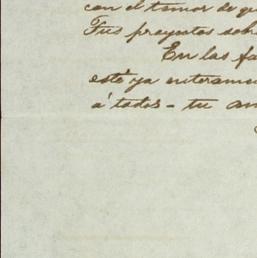 con el temor de qu
Tus proyectos sob
En las fa
esté ya enteram
á todos - tu am